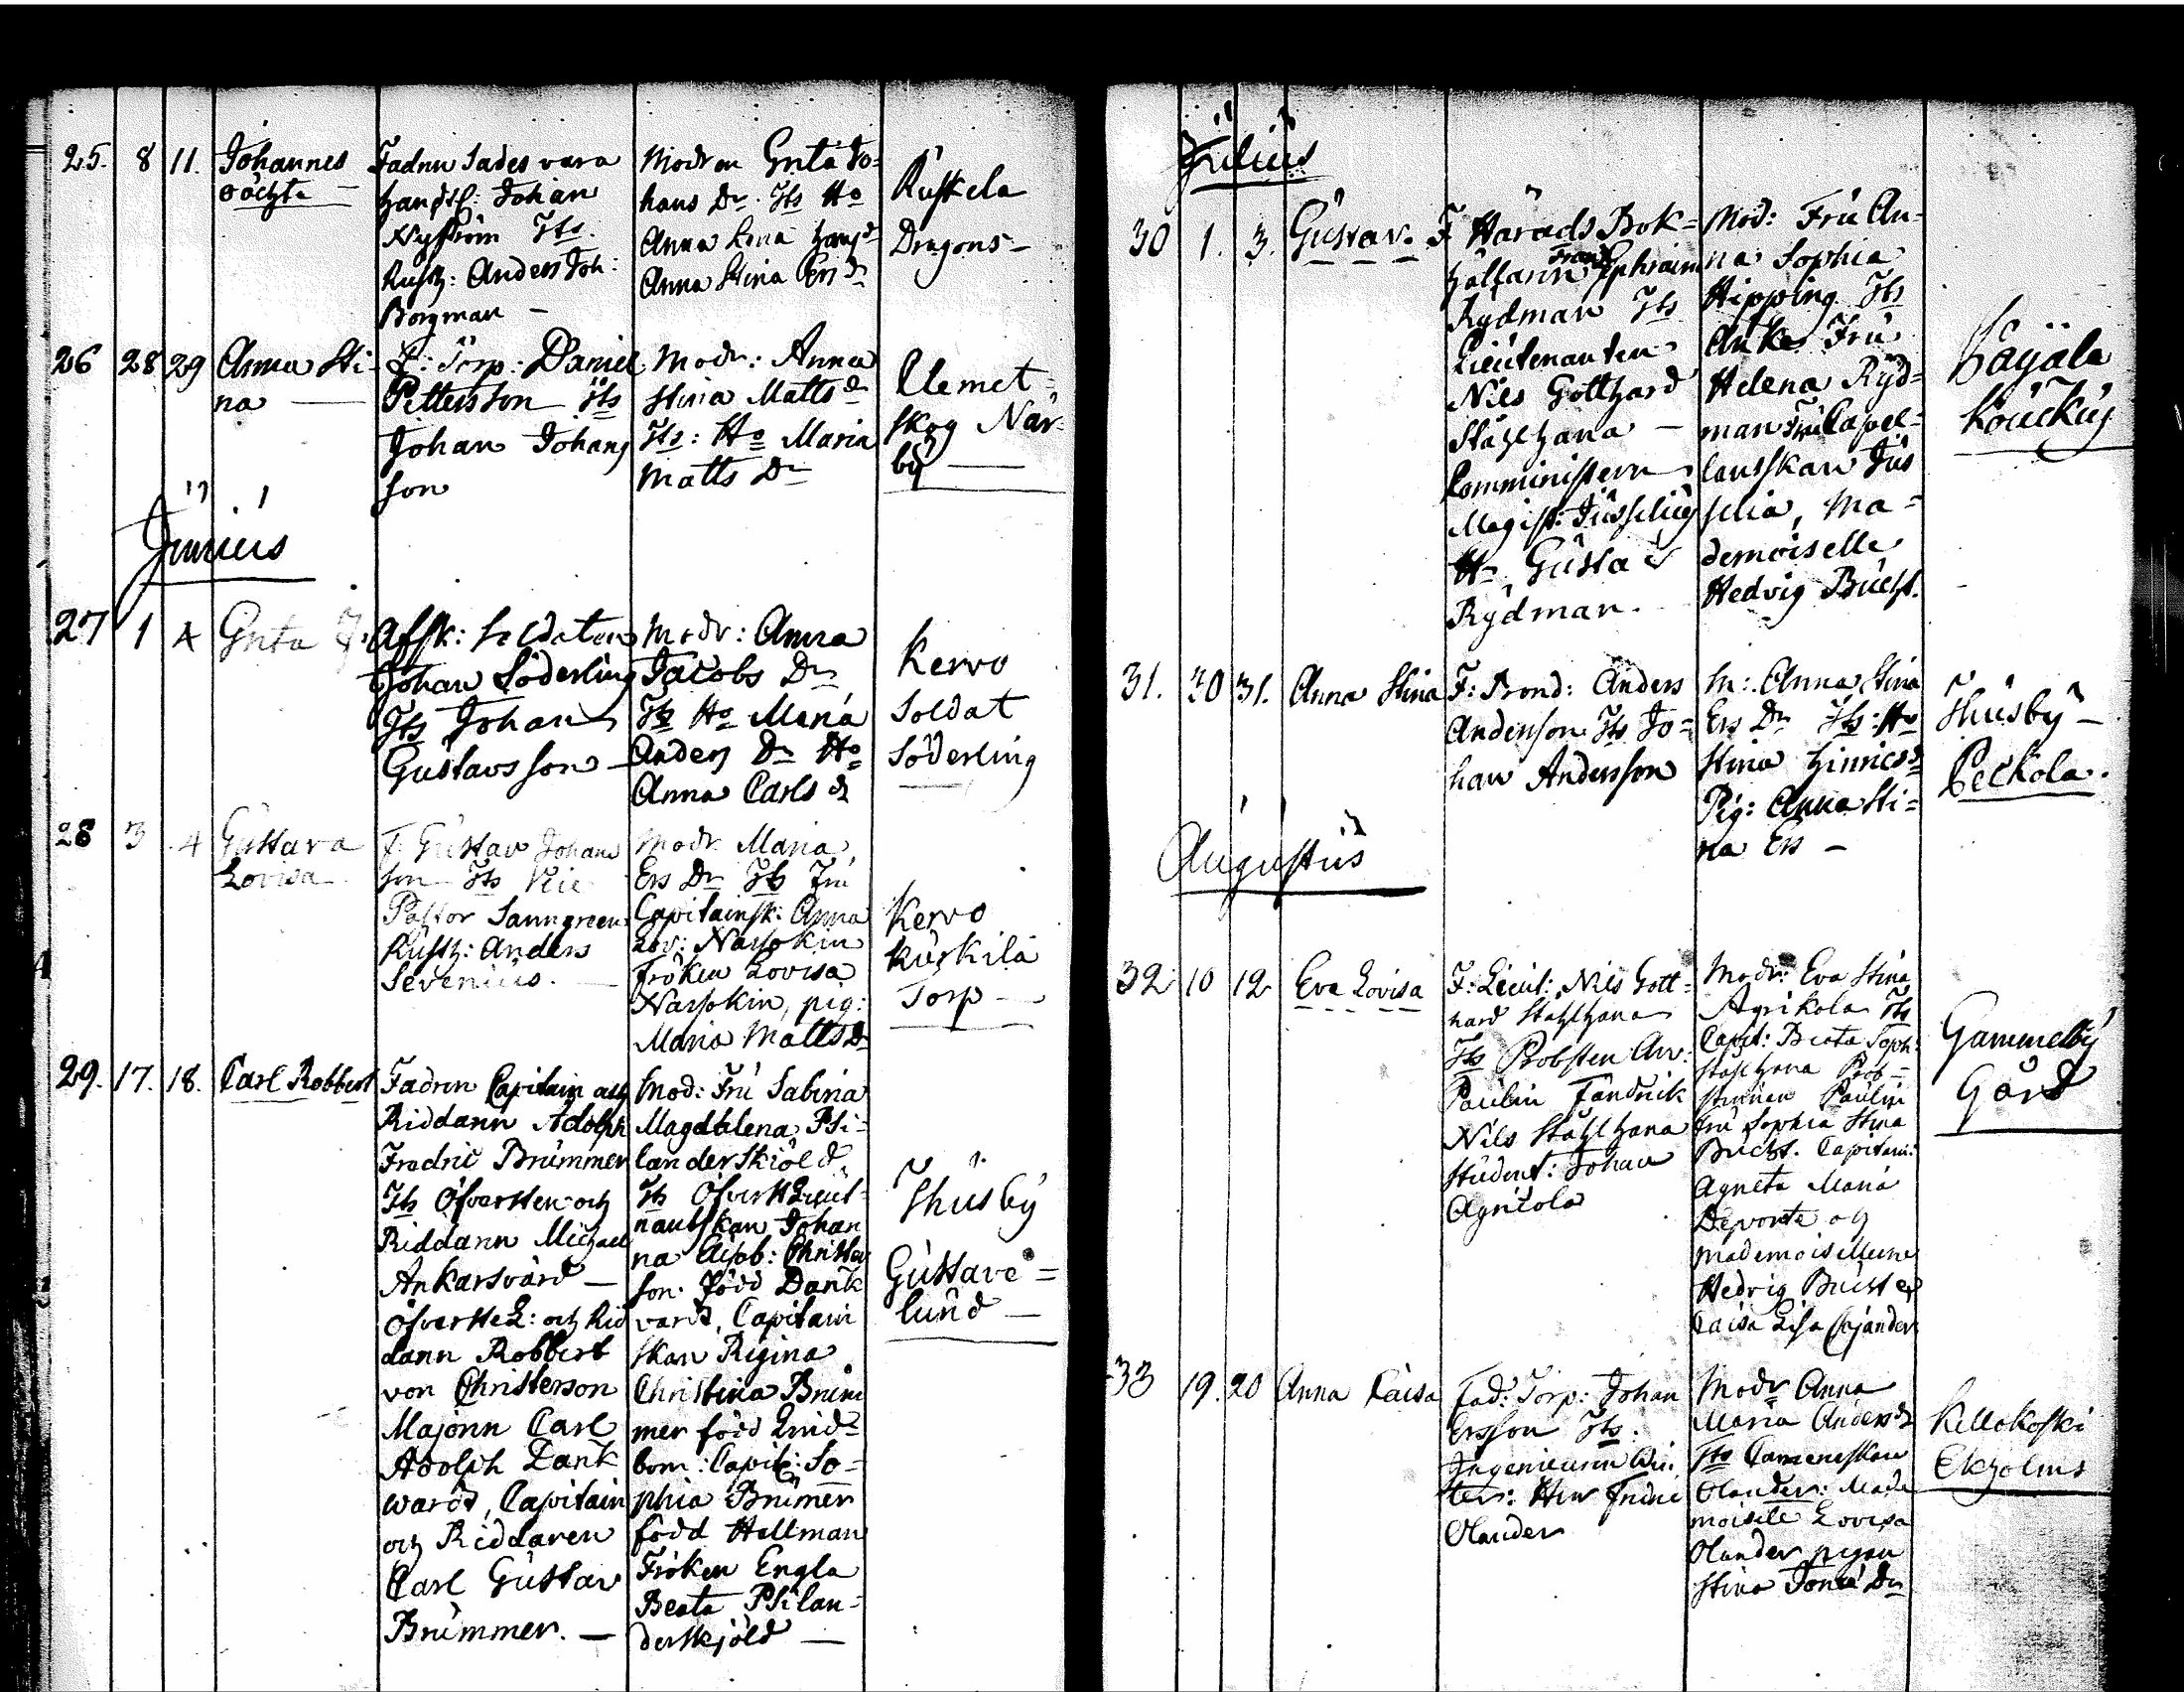 25. 8 11. Johannes
oächta
Fadren Sades vara
handtl: Johan
Nyström Tts.
Rustz: Anders Joh:
Borgman
Modren Greta Jo=
hans Dr. Tts Ho
Anna Lena
Anna Stina Ers dr
Ruskela
Dragons
26 28 29 Anna Sti=
na
F: Torp: Daniel
Pettersson Tts
Johan Johans
son
Modr: Anna
Stina Matts dr
Tts: Ho Maria
Matts Dr
Clemet=
skog När=
by
Junius
27 1 4 Greta
F. Afsk: Soldaten
Johan Söderling
Tts Johan
Gustavsson
Modr: Anna
Jacobs Dr
Tts Ho Maria
Anders Dr Ho
Anna Carls dr
Kervo
Soldat
Söderling
28 3 4 Gustava
Lovisa
F. Gustav Johans
son Tts Vice
Pastor
Rustz: Anders
Sevenius.
Modr. Maria
Ers Dr Tts Fru
Capitainsk: Anna
Lov: Nassokin
Fröken Lovisa
Nassokin, pig:
Maria Matts Dr
Kervo
Kurkila
Torp
29. 17. 18. Carl Robbert
Fadren Capitain och
Riddarn Adolph
Fredric Brummer
Tts Öfversten och
Riddarn Michael
Ankarsvärd
Öfverste L: och Rid
darn Robbert
von Christerson
Majorn Carl
Adolph Dank
wardt, Capitain
och Riddaren
Carl Gustav
Brummer.
Mod: Fru Sabina
Magdalena Psi=
landerskiöld.
Tts Öfverst Lieut=
nantskan Johan
na Elisab: Christer
son. född Dank
vardt, Capitain
skan Regina
Christina Brum
mer född Lind=
bom: Capit: So=
phia Brumer
född Hellman
Fröken Engla
Beata Psilan=
derskjöld
Thusby
Gustave=
lund
Julius
30 1. 3. Gustav.
F Härads Bok=
hållarn Frans Ephraim
Rydman Tts
Lieutenanten
Nils Gotthard
Ståhlhana
Comministern
Magist: Jusselius
Hr Gustav
Rydman.
Mod: Fru An=
na Sophia
Hipping Tts
Enke Fru
Helena Ryd=
man Fru Capel=
lanskan Jus
selia, Ma=
demoiselle
Hedvig Bucht.
Layala
Kouckuj
31. 30 31. Anna Stina
F: Brond: Anders
Andersson Tts Jo=
han Andersson
M: Anna Stina
Ers Dr Tts: Ho
Stina Hinricsdr
Pig: Anna Sti=
na Ers
Thusby
Peckola.
Augustus
32 10 12 Eva Lovisa
F: Lieut: Nils Gott=
hard Stahlhana
Tts Probsten Arv:
Paulin Fändrick
Nils Stahlhana
Student: Johan
Agricola
Modr: Eva Stina
Agrikola Tts
Capit: Beata Soph:
Stahlhana Prob=
stinnan Paulin
Fru Sophia Stina
Bucht. Capitain:
Agneta Maria
Deponte och
Mademoisellerne
Hedvig Bucht och
Caisa Lisa Cajander
Gammelby
Gård
33 19. 20 Anna Caisa
Fad: Torp: Johan
Ersson Tts:
Ingenieurn
Olander
Modr Anna
Maria Anders dr
Tts
Olander: Made
moisele Lovisa
Olander pigan
Stina Dr
Kellokoski
Ekholms